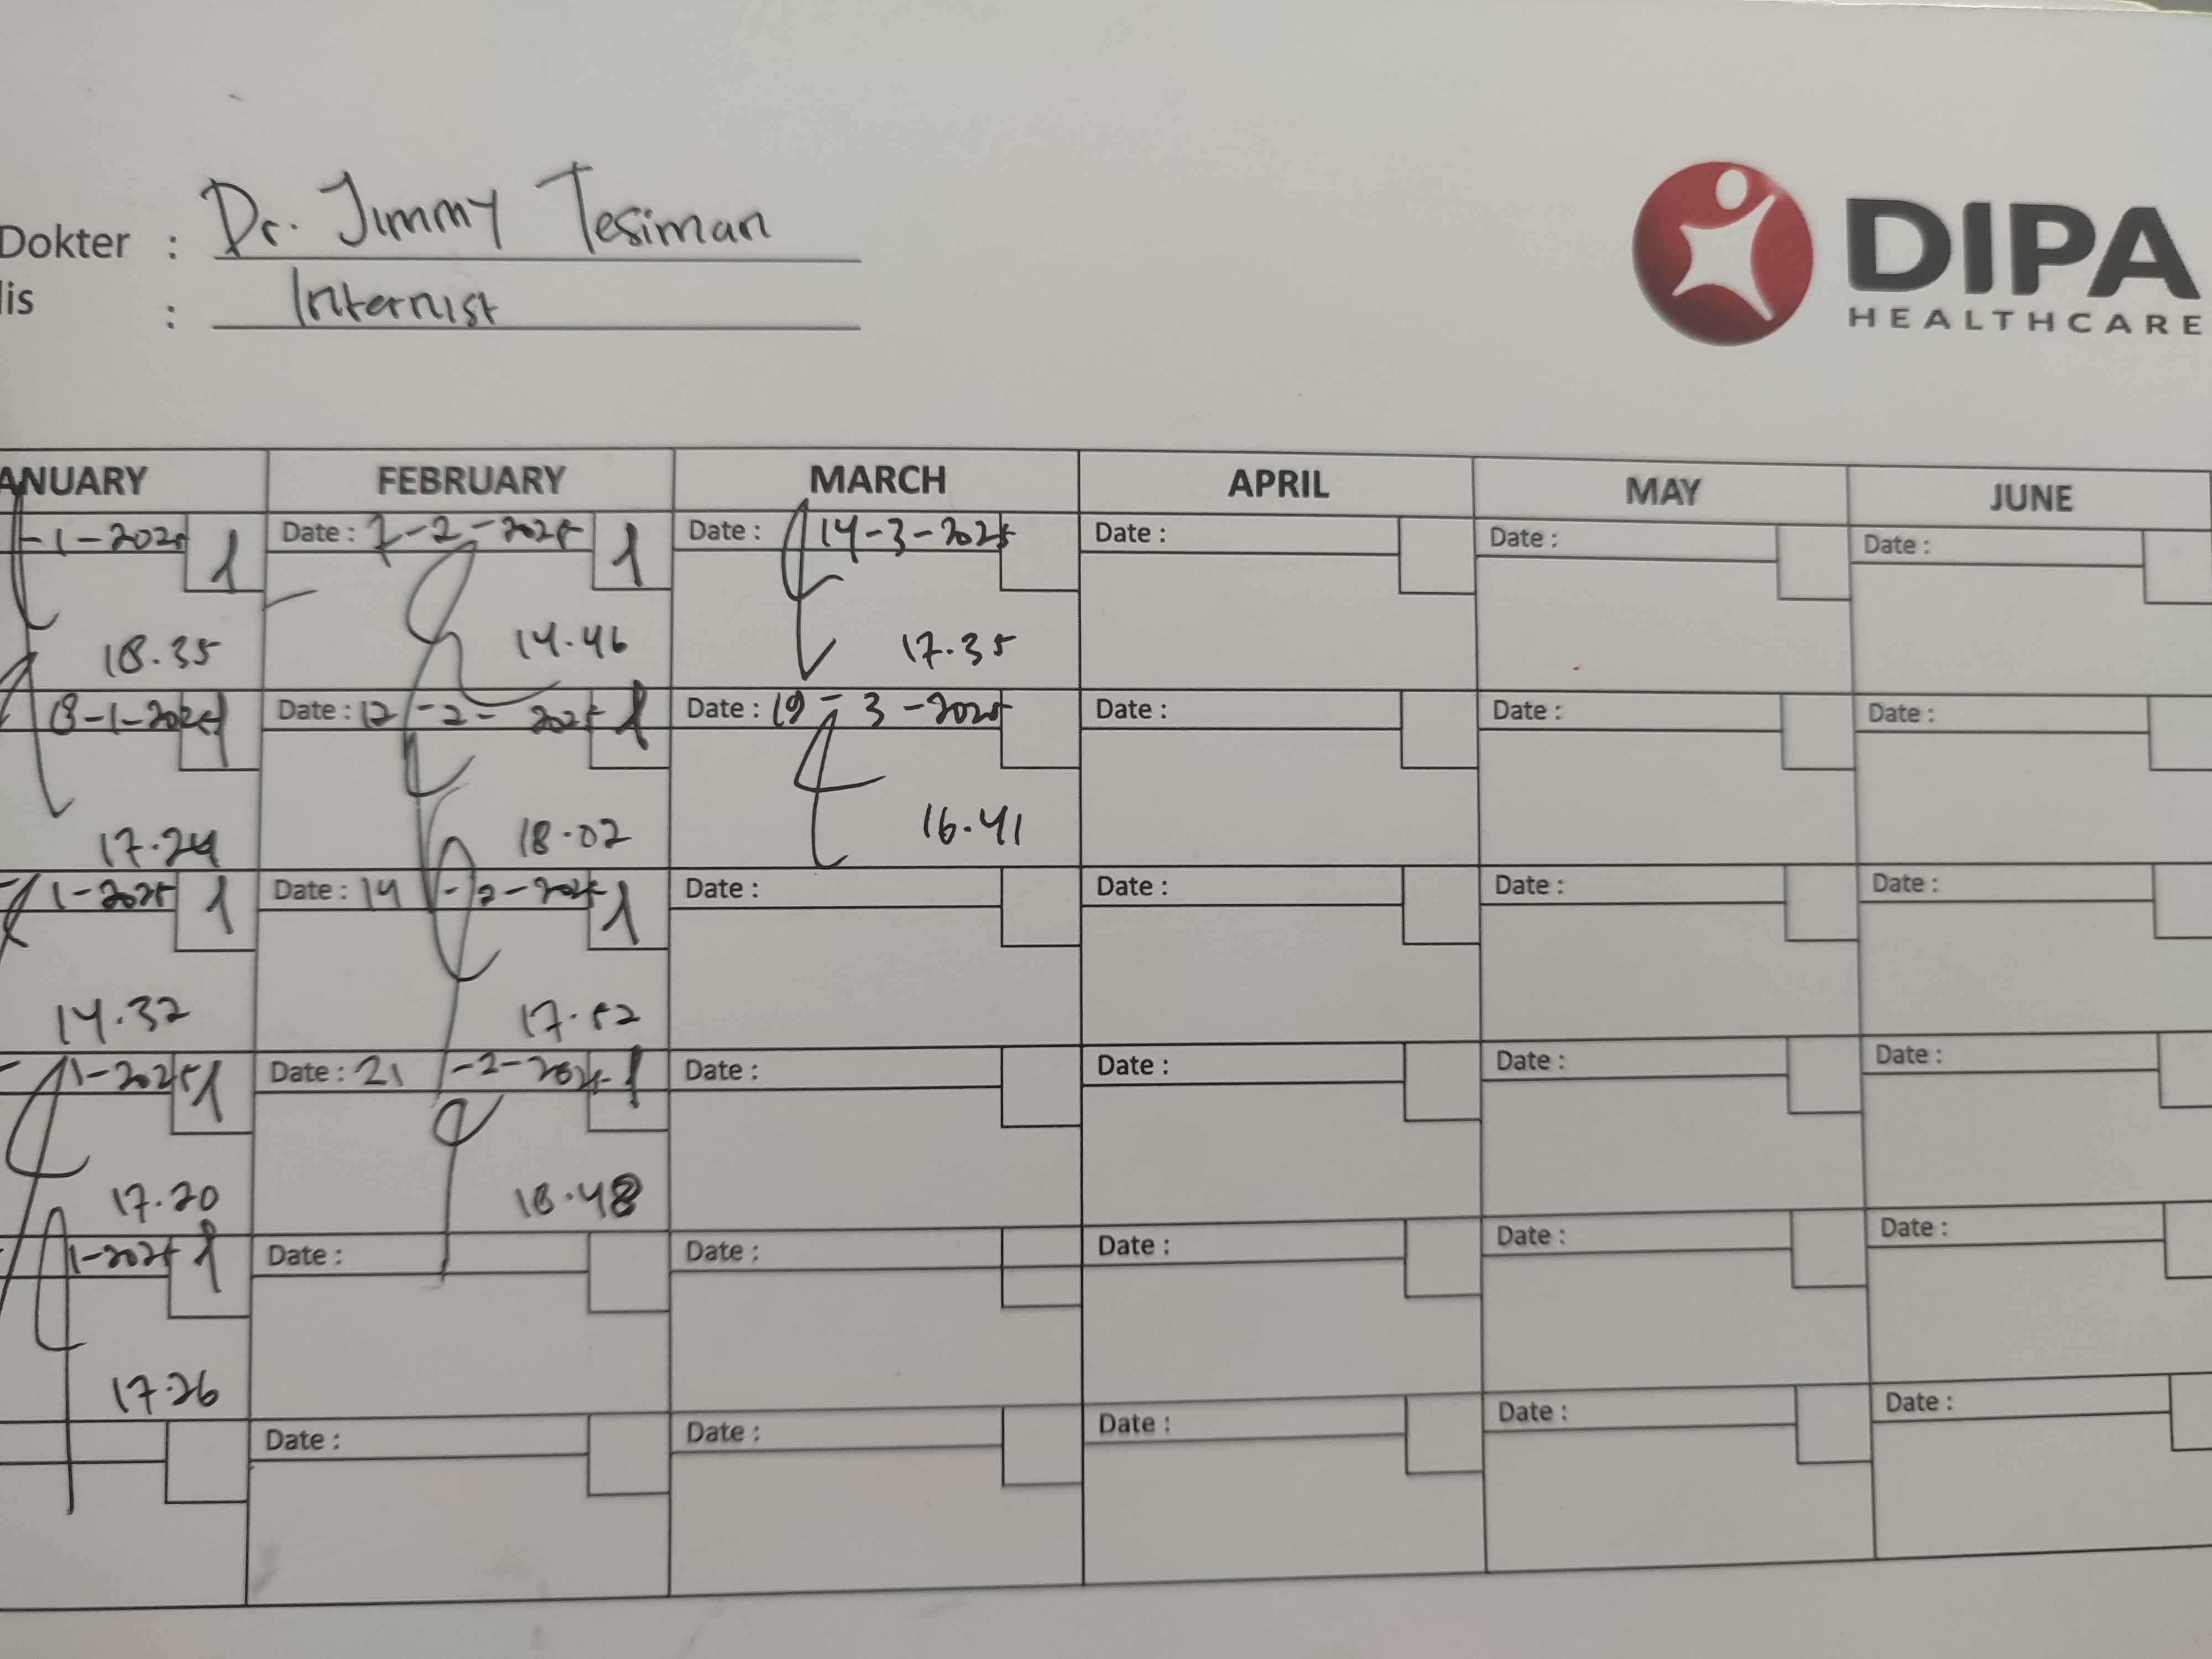 Dokter : Dr. Jimmy Tesiman
lis : Internist
DIPA
HEALTHCARE
ANUARY FEBRUARY MARCH APRIL MAY JUNE
-1-2025 1 Date : 7-2-2025 1 Date : 14-3-2025 Date : Date : Date :
18.35 14.46 17.35
8-1-2025 1 Date : 12-2-2025 1 Date : 19-3-2025 Date : Date : Date :
17.24 18.02 16.41
1-2025 1 Date : 14-2-2025 1 Date : Date : Date : Date :
14.32 17.52
1-2025 1 Date : 21-2-2025 1 Date : Date : Date : Date :
17.20 18.48
1-2025 1 Date : Date : Date : Date : Date :
17.26
Date : Date : Date : Date : Date :